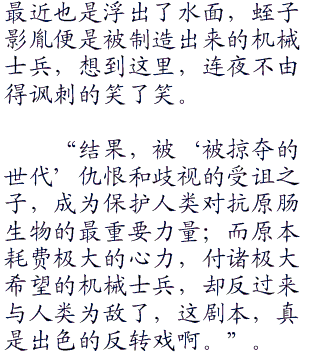 最近也是浮出了水面，蛭子
影胤便是被制造出来的机械
士兵，想到这里，连夜不由
得讽刺的笑了笑。
“结果，被‘被掠夺的
世代’仇恨和歧视的受诅之
子，成为保护人类对抗原肠
生物的最重要力量；而原本
耗费极大的心力，付诸极大
希望的机械士兵，却反过来
与人类为敌了，这剧本，真
是出色的反转戏啊。”。